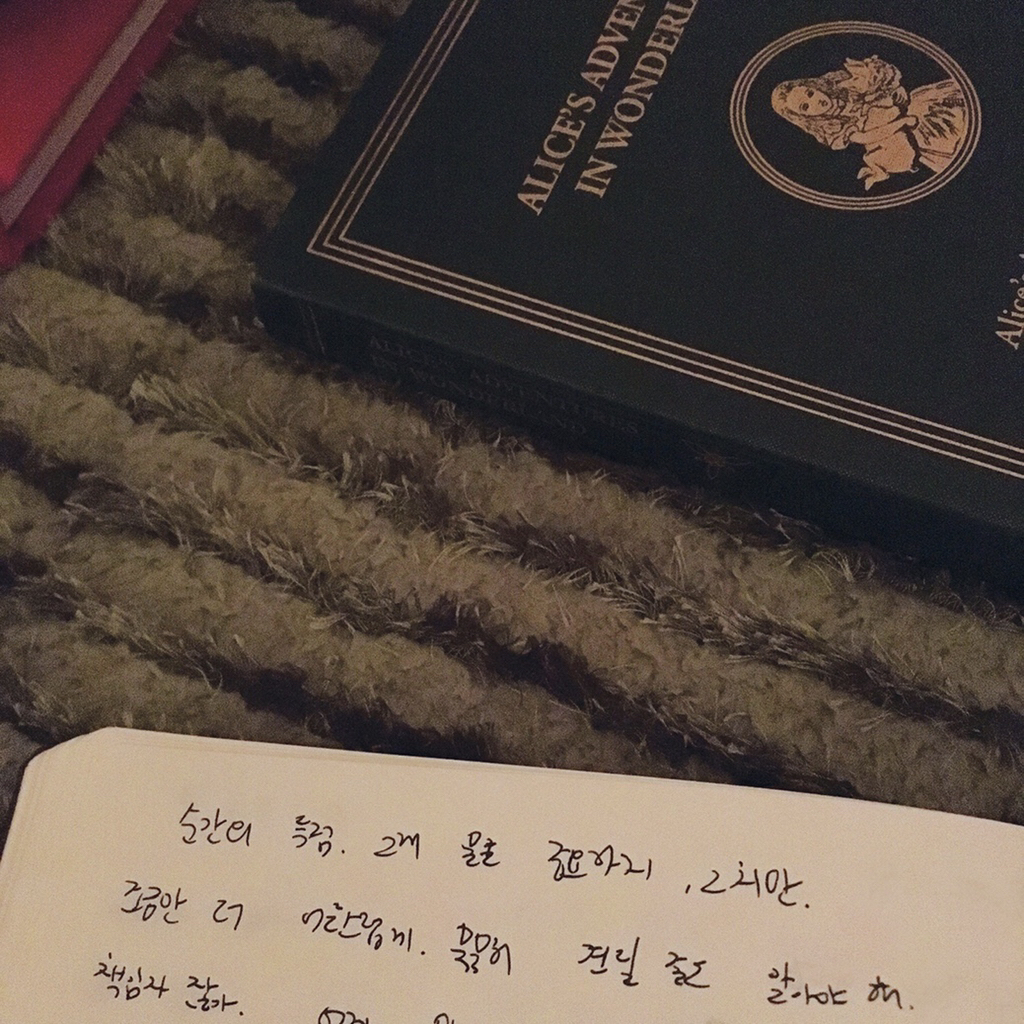 ALICE'S ADVEN
IN WONDERL
Alice's
ALICE'S ADVENTURES
IN WONDERLAND
순간의 특권. 그래 물론 중요하지, 그치만.
조금만 더 묵묵히 견딜 줄도 알아야 해.
책임자 잖아.